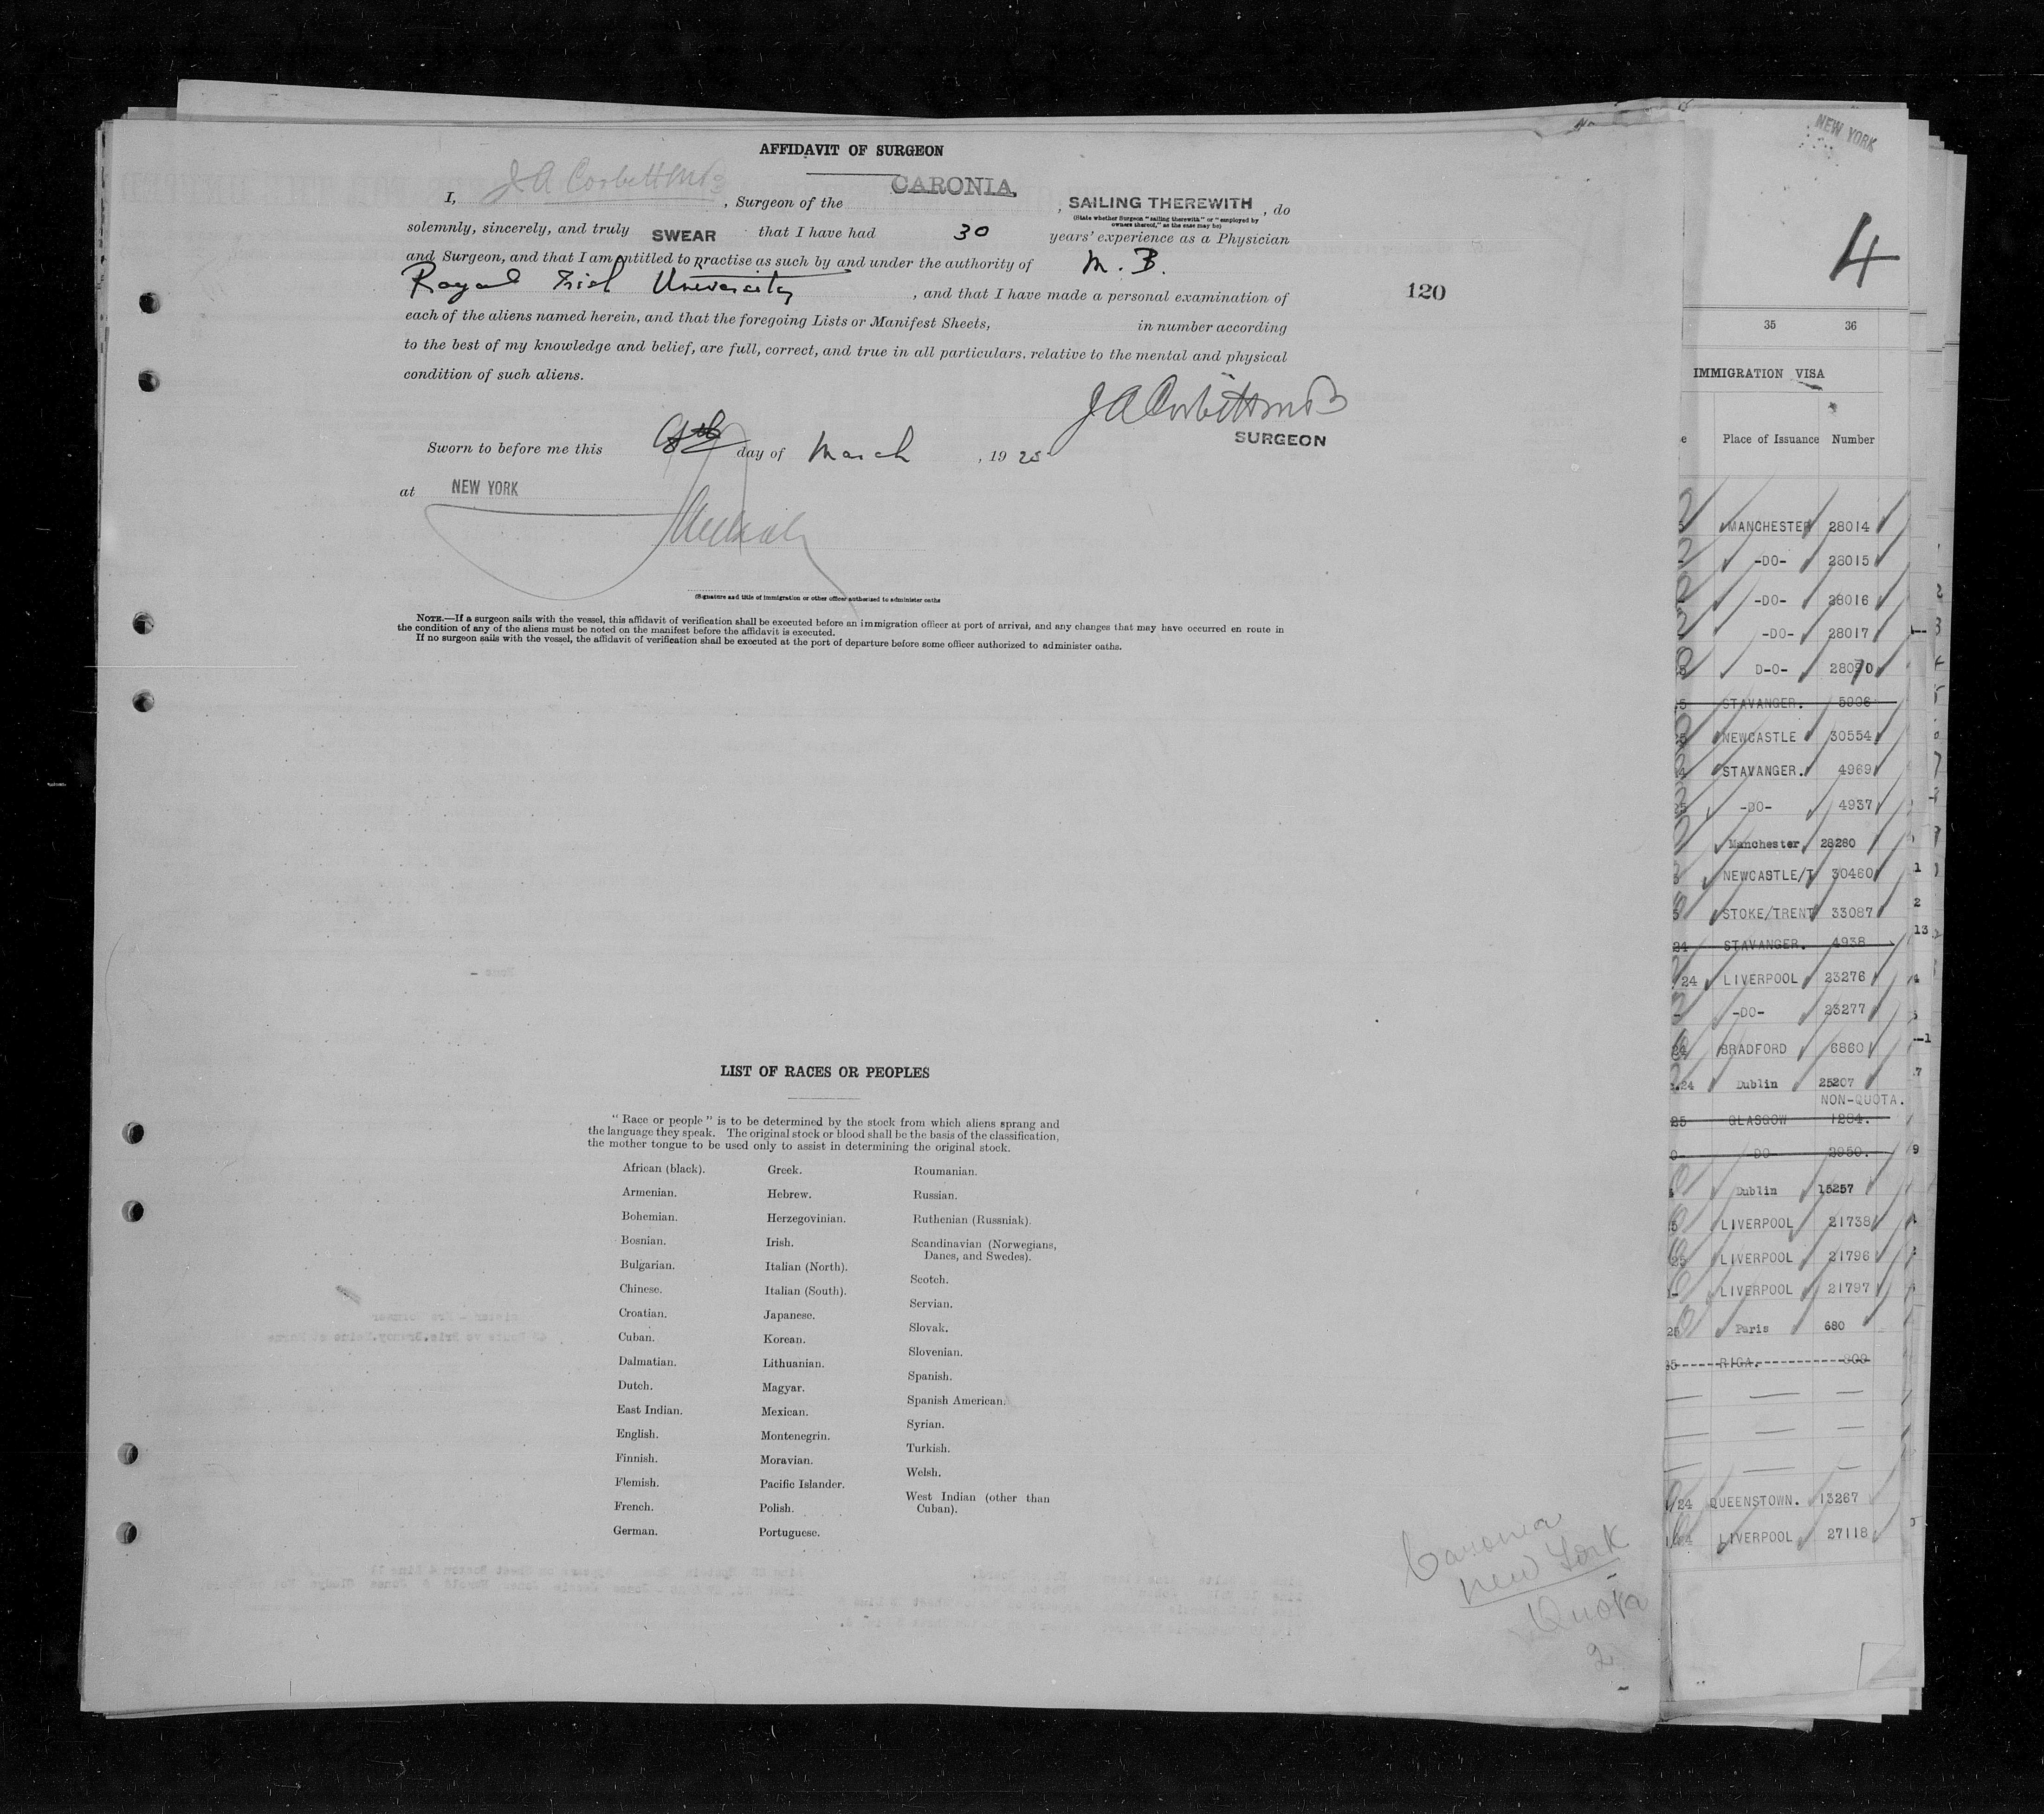 AFFIDAVIT OF SURGEON
I, J A Corbett MB, Surgeon of the CARONIA, SAILING THEREWITH, do
(State whether Surgeon "sailing therewith" or "employed by
owners thereof," as the case may be)
solemnly, sincerely, and truly SWEAR that I have had 30 years' experience as a Physician
and Surgeon, and that I am entitled to practise as such by and under the authority of M. B.
Royal Irish University, and that I have made a personal examination of
each of the aliens named herein, and that the foregoing Lists or Manifest Sheets, in number according
to the best of my knowledge and belief, are full, correct, and true in all particulars, relative to the mental and physical
condition of such aliens.
J A Corbett MB
SURGEON
Sworn to before me this day of March, 1925
at NEW YORK
(Signature and title of immigration or other officer authorized to administer oaths
NOTE.—If a surgeon sails with the vessel, this affidavit of verification shall be executed before an immigration officer at port of arrival, and any changes that may have occurred en route in
the condition of any of the aliens must be noted on the manifest before the affidavit is executed.
If no surgeon sails with the vessel, the affidavit of verification shall be executed at the port of departure before some officer authorized to administer oaths.
120
LIST OF RACES OR PEOPLES
"Race or people" is to be determined by the stock from which aliens sprang and
the language they speak. The original stock or blood shall be the basis of the classification,
the mother tongue to be used only to assist in determining the original stock.
African (black).
Armenian.
Bohemian.
Bosnian.
Bulgarian.
Chinese.
Croatian.
Cuban.
Dalmatian.
Dutch.
East Indian.
English.
Finnish.
Flemish.
French.
German.
Greek.
Hebrew.
Herzegovinian.
Irish.
Italian (North).
Italian (South).
Japanese.
Korean.
Lithuanian.
Magyar.
Mexican.
Montenegrin.
Moravian.
Pacific Islander.
Polish.
Portuguese.
Roumanian.
Russian.
Ruthenian (Russniak).
Scandinavian (Norwegians,
Danes, and Swedes).
Scotch.
Servian.
Slovak.
Slovenian.
Spanish.
Spanish American.
Syrian.
Turkish.
Welsh.
West Indian (other than
Cuban).
Caronia
New York
Quota
2
NEW YORK
4
35 36
IMMIGRATION VISA
Place of Issuance Number
MANCHESTER 28014
-DO- 28015
-DO- 28016
-DO- 28017
D-O-
STAVANGER. 5906
NEWCASTLE 30554
STAVANGER. 4969
-DO- 4937
Manchester 28280
NEWCASTLE/T 30460
STOKE/TRENT 33087
STAVANGER. 4938
LIVERPOOL 23276
-DO- 23277
BRADFORD 6860
Dublin 25207
NON-QUOTA.
GLASGOW 1284.
DO 2950.
Dublin 15257
LIVERPOOL 21738
LIVERPOOL 21796
LIVERPOOL 21797
Paris 680
RIGA.
QUEENSTOWN. 13267
LIVERPOOL 27118